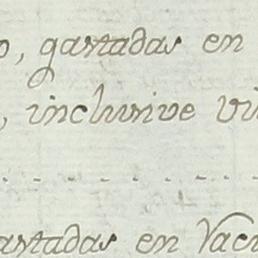 o, gastadas en
, inclusive vi
astadas en Vac